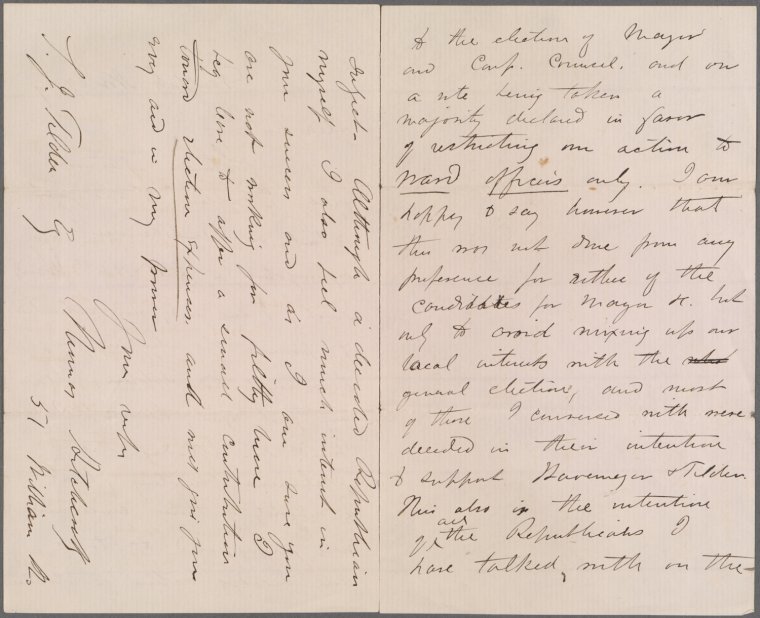 to the election of Mayor
and Corp. Counsel. and on
a vote being taken a
majority declared in favor
of restricting our action to
ward officers only. I am
happy to say however that
this was not done from any
preference for either of the
candidates for Mayor &c. but
only to avoid mixing up our
local interests with the
general elections, and most
of those I conversed with were
decided in their intention
to support Havemeyer & Tilden.
This also is the intention
of all the Republicans I
have talked with on the
subject. Although a decided Republican
myself I also feel much interest in
your success and as I am sure you
are not working for filthy lucre I
beg leave to offer a small contribution
toward election expenses and will give you
any aid in my power
Yours truly
Thomas Hitchcock
57 William St.
S. J. Tilden Esq